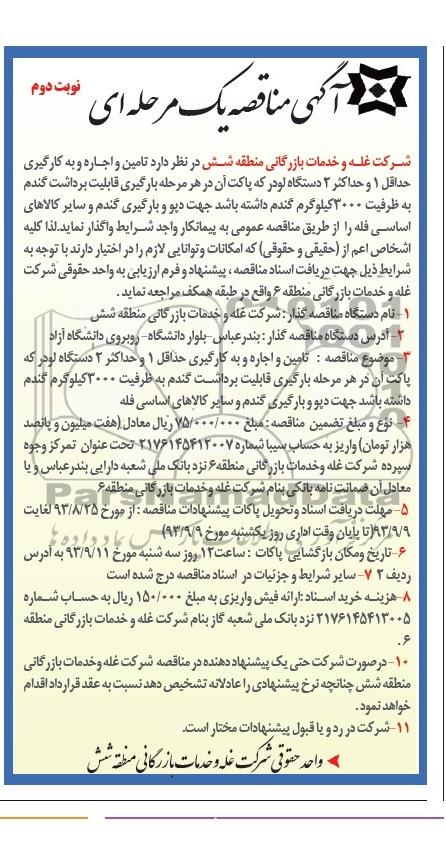 آگهی مناقصه یک مرحله ای
نوبت دوم
شرکت غله و خدمات بازرگانی منطقه شش در نظر دارد تامین و اجاره و به کارگیری
حداقل ۱ و حداکثر ۲ دستگاه لودر که پاکت آن در هر مرحله بارگیری قابلیت برداشت گندم
به ظرفیت ۳۰۰۰کیلوگرم گندم داشته باشد جهت دپو و بارگیری گندم و سایر کالاهای
اساسی فله را از طریق مناقصه عمومی به پیمانکار واجد شرایط واگذار نماید.لذا کلیه
اشخاص اعم از (حقیقی و حقوقی) که امکانات وتوانایی لازم را در اختیار دارند با توجه به
شرایط ذیل جهت دریافت اسناد مناقصه ، پیشنهاد و فرم ارزیابی به واحد حقوقی شرکت
غله و خدمات بازرگانی منطقه ۶ واقع در طبقه همکف مراجعه نماید .
۱- نام دستگاه مناقصه گذار : شرکت غله و خدمات بازرگانی منطقه شش
۲- آدرس دستگاه مناقصه گذار : بندرعباس-بلوار دانشگاه- روبروی دانشگاه آزاد
۳- موضوع مناقصه : تامین و اجاره و به کارگیری حداقل ۱ و حداکثر ۲ دستگاه لودر که
پاکت آن در هر مرحله بارگیری قابلیت برداشت گندم به ظرفیت ۳۰۰۰ کیلوگرم گندم
داشته باشد جهت دپو و بارگیری گندم و سایر کالاهای اساسی فله
۴- نوع و مبلغ تضمین مناقصه : مبلغ ۷۵/۰۰۰/۰۰۰ ریال معادل (هفت میلیون و پانصد
هزار تومان) واریز به حساب سیبا شماره ۲۱۷۶۱۴۵۴۱۲۰۰۷ تحت عنوان تمرکز وجوه
سپرده شرکت غله وخدمات بازرگانی منطقه۶ نزد بانک ملی شعبه دارایی بندرعباس و یا
معادل آن ضمانت نامه بانکی بنام شرکت غله و خدمات بازرگانی منطقه۶
۵- مهلت دریافت اسناد وتحویل پاکات پیشنهادات مناقصه : از مورخ ۹۳/۸/۲۵ لغایت
۹۳/۹/۹(تا پایان وقت اداری روز یکشنبه مورخ ۹۳/۹/۹)
۶- تاریخ ومکان بازگشایی پاکات : ساعت۱۲ روز سه شنبه مورخ ۹۳/۹/۱۱ به آدرس
ردیف ۲ ۷- سایر شرایط و جزئیات در اسناد مناقصه درج شده است
۸-هزینه خرید اسناد :ارائه فیش واریزی به مبلغ ۱۵۰/۰۰۰ ریال به حساب شماره
۲۱۷۶۱۴۵۴۱۳۰۰۵ نزد بانک ملی شعبه گاز بنام شرکت غله و خدمات بازرگانی منطقه
۶ .
۱۰-درصورت شرکت حتی یک پیشنهاد دهنده در مناقصه شرکت غله وخدمات بازرگانی
منطقه شش چنانچه نرخ پیشنهادی را عادلانه تشخیص دهد نسبت به عقد قرارداد اقدام
خواهد نمود .
۱۱-شرکت در رد و یا قبول پیشنهادات مختار است.
واحد حقوقی شرکت غله و خدمات بازرگانی منطقه شش